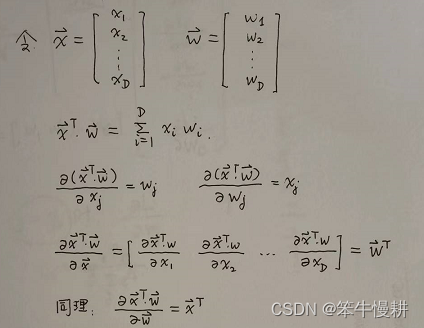 令 x⃗ = [x₁ x₂ ⋮ x_D] w⃗ = [w₁ w₂ ⋮ w_D]
x⃗ᵀ·w⃗ = Σ_{i=1}^{D} xᵢ wᵢ.
∂(x⃗ᵀ·w⃗)/∂xⱼ = wⱼ ∂(x⃗ᵀ·w⃗)/∂wⱼ = xⱼ
∂x⃗ᵀ·w⃗/∂x⃗ = [∂x⃗ᵀ·w/∂x₁ ∂x⃗ᵀ·w/∂x₂ … ∂x⃗ᵀ·w/∂x_D] = w⃗ᵀ
同理: ∂x⃗ᵀ·w⃗/∂w⃗ = x⃗ᵀ
CSDN @笨牛慢耕